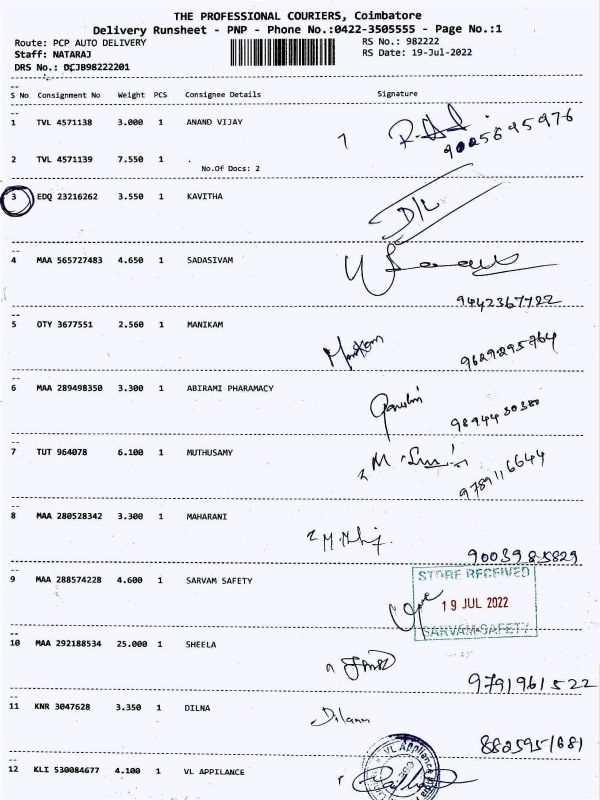 THE PROFESSIONAL COURIERS, Coimbatore
Delivery Runsheet - PNP - Phone No.:0422-3505555 - Page No.:1
Route: PCP AUTO DELIVERY RS No.: 982222
Staff: NATARAJ RS Date: 19-Jul-2022
DRS No.: DCJB98222201
S No Consignment No Weight PCS Consignee Details Signature
1 TVL 4571138 3.000 1 ANAND VIJAY
9025695976
2 TVL 4571139 7.550 1 .
No.Of Docs: 2
3 EDQ 23216262 3.550 1 KAVITHA
D/L
4 MAA 565727483 4.650 1 SADASIVAM
9442367722
5 OTY 3677551 2.560 1 MANIKAM
9629295764
6 MAA 289498350 3.300 1 ABIRAMI PHARAMACY
9894430380
7 TUT 964078 6.100 1 MUTHUSAMY
9789116644
8 MAA 280528342 3.300 1 MAHARANI
9003985829
9 MAA 288574228 4.600 1 SARVAM SAFETY
STORE RECEIVED
19 JUL 2022
SARVAM SAFETY
10 MAA 292188534 25.000 1 SHEELA
9791961522
11 KNR 3047628 3.350 1 DILNA
8825951681
12 KLI 530084677 4.100 1 VL APPILANCE